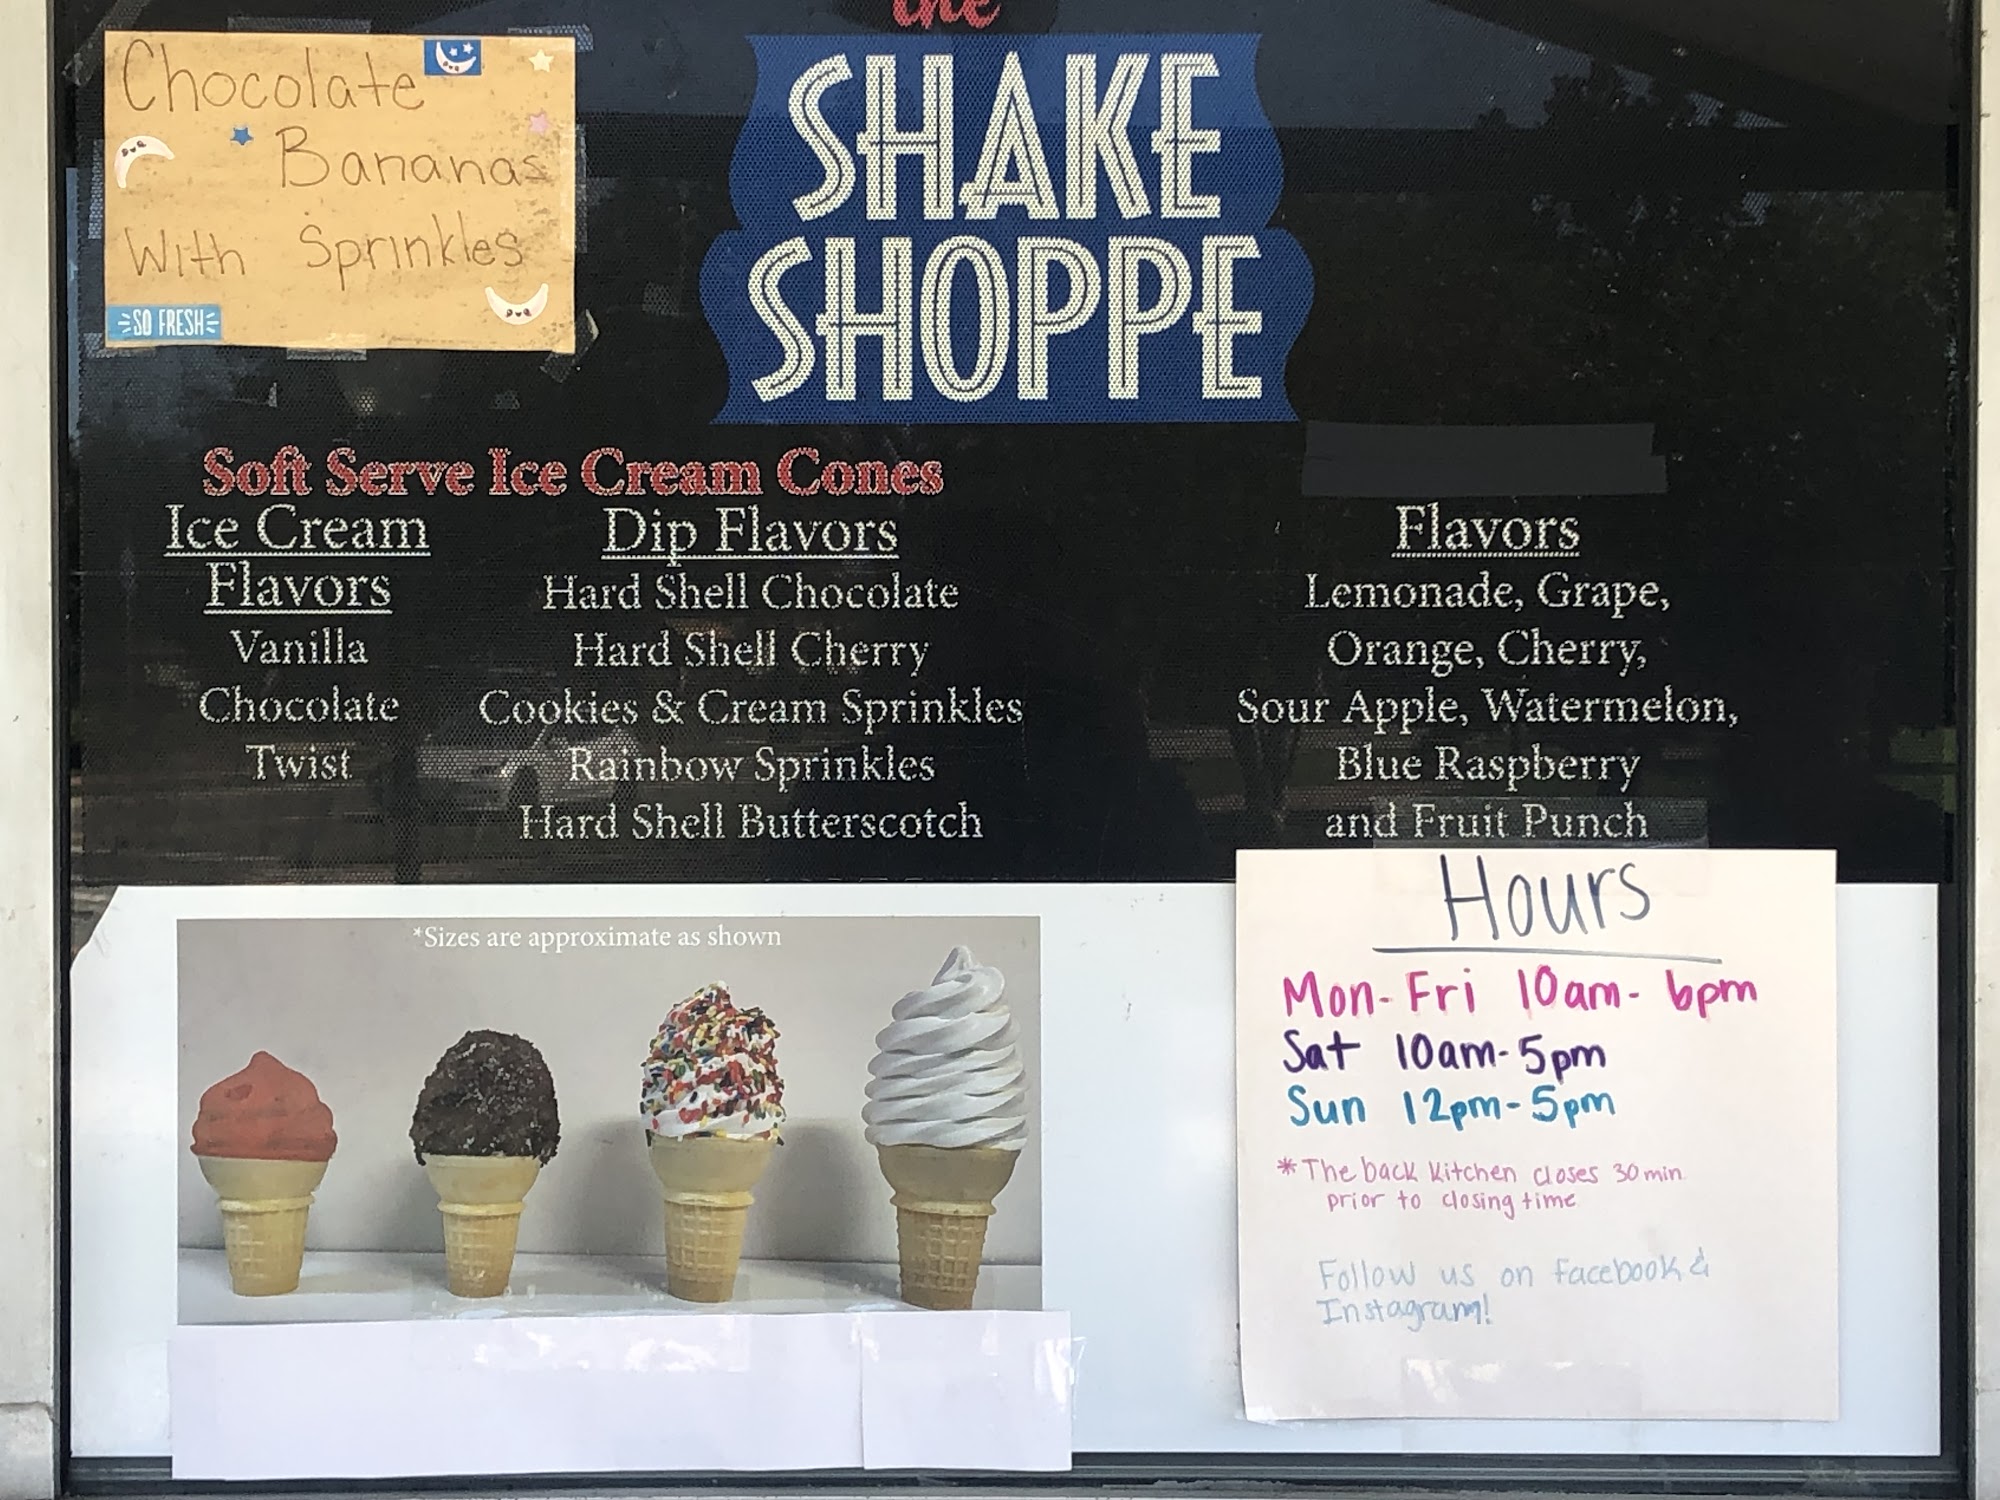 Chocolate
Bananas
With Sprinkles
SO FRESH
the
SHAKE
SHOPPE
Soft Serve Ice Cream Cones
Ice Cream
Flavors
Vanilla
Chocolate
Twist
Dip Flavors
Hard Shell Chocolate
Hard Shell Cherry
Cookies & Cream Sprinkles
Rainbow Sprinkles
Hard Shell Butterscotch
Flavors
Lemonade, Grape,
Orange, Cherry,
Sour Apple, Watermelon,
Blue Raspberry
and Fruit Punch
*Sizes are approximate as shown
Hours
Mon-Fri 10am-6pm
Sat 10am-5pm
Sun 12pm-5pm
*The back kitchen closes 30min
prior to closing time
Follow us on facebook &
Instagram!